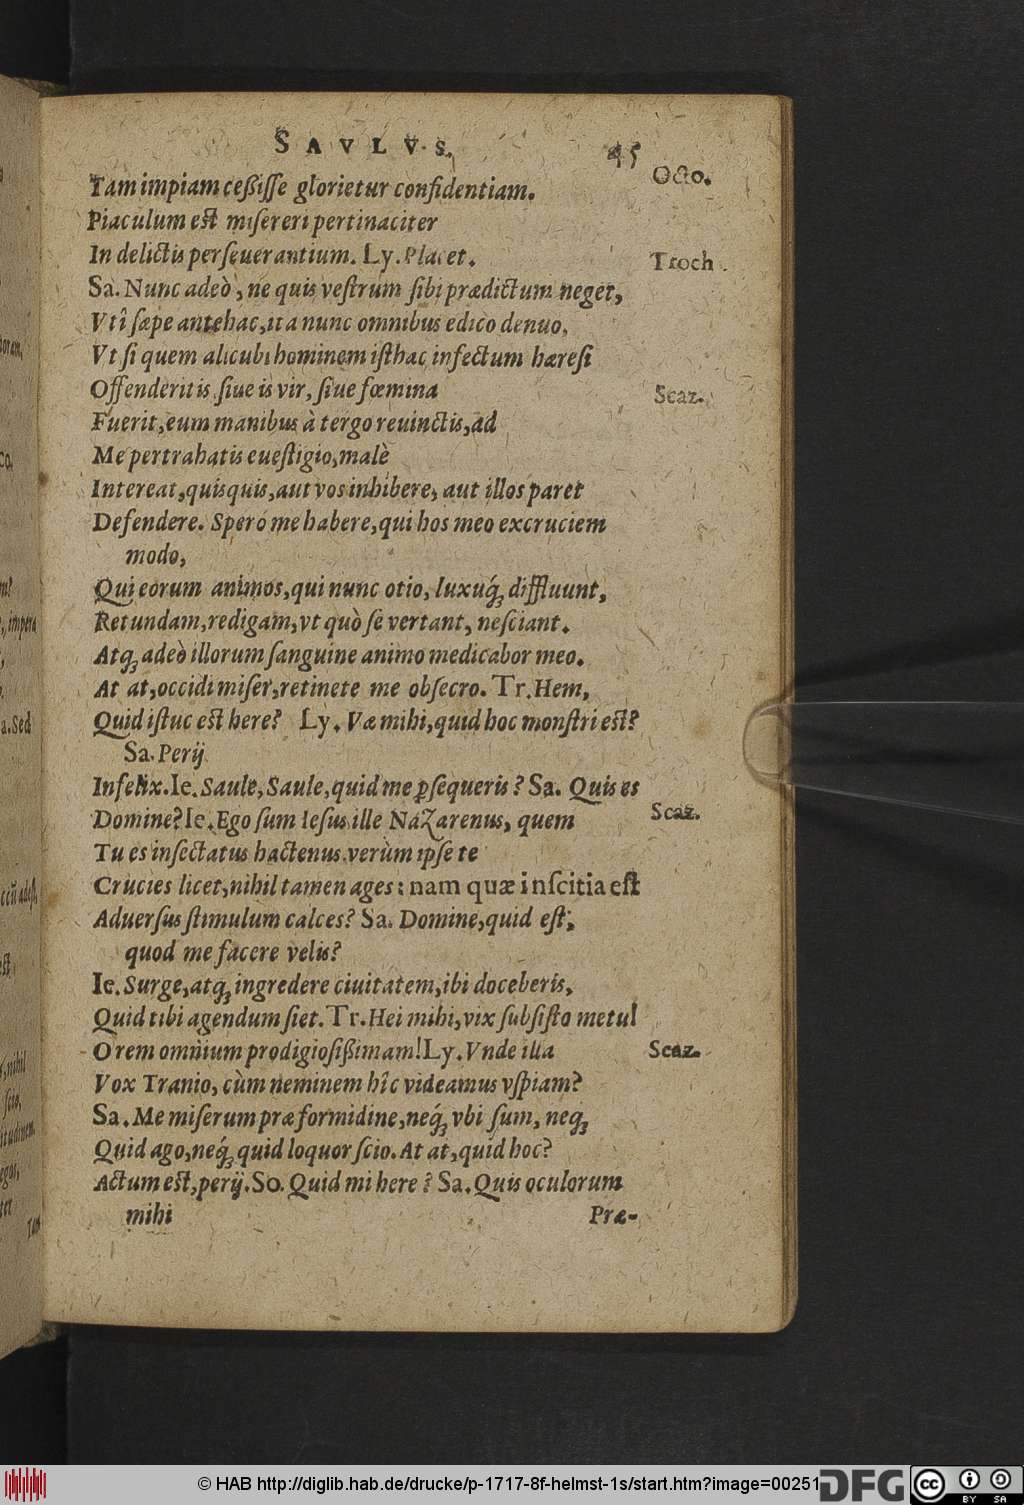 SAVLVS. 45
Tam impiam ceßiſſe glorietur confidentiam. Octo.
Piaculum est miſereri pertinaciter
In delictis perſeuerantium. Ly. Placet. Troch.
Sa. Nunc adeò, ne quis veſtrum ſibi prædictum neget,
Vtî ſæpe antehac, ita nunc omnibus edico denuo,
Vt ſi quem alicubi hominem iſthac infectum hæreſi
Offenderitis ſiue is vir, ſiue fœmina Scaz.
Fuerit, eum manibus à tergo reuinctis, ad
Me pertrahatis eueſtigio, malè
Intereat, quisquis, aut vos inhibere, aut illos paret
Defendere. Spero me habere, qui hos meo excruciem
modo,
Qui eorum animos, qui nunc otio, luxuq́; diffluunt,
Retundam, redigam, vt quò ſe vertant, neſciant.
Atq; adeò illorum ſanguine animo medicabor meo.
At at, occidi miſer, retinete me obſecro. Tr. Hem,
Quid iſtuc est here? Ly. Væ mihi, quid hoc monſtri est?
Sa. Perij
Infelix. Ie. Saule, Saule, quid me ꝑſequeris? Sa. Quis es
Domine? Ie. Ego ſum Ieſus ille Nazarenus, quem Scaz.
Tu es inſectatus hactenus. verùm ipſe te
Crucies licet, nihil tamen ages: nam quæ inſcitia eſt
Aduerſus ſtimulum calces? Sa. Domine, quid eſt,
quod me facere velis?
Ie. Surge, atq; ingredere ciuitatem, ibi doceberis,
Quid tibi agendum ſiet. Tr. Hei mihi, vix ſubſiſto metu!
O rem omnium prodigioſißimam! Ly. Vnde illa Scaz.
Vox Tranio, cùm neminem hîc videamus vſpiam?
Sa. Me miſerum præ formidine, neq́; vbi ſum, neq;
Quid ago, neq́; quid loquor ſcio. At at, quid hoc?
Actum est, perij. So. Quid mi here? Sa. Quis oculorum
mihi Præ-
© HAB http://diglib.hab.de/drucke/p-1717-8f-helmst-1s/start.htm?image=00251
DFG
cc BY SA